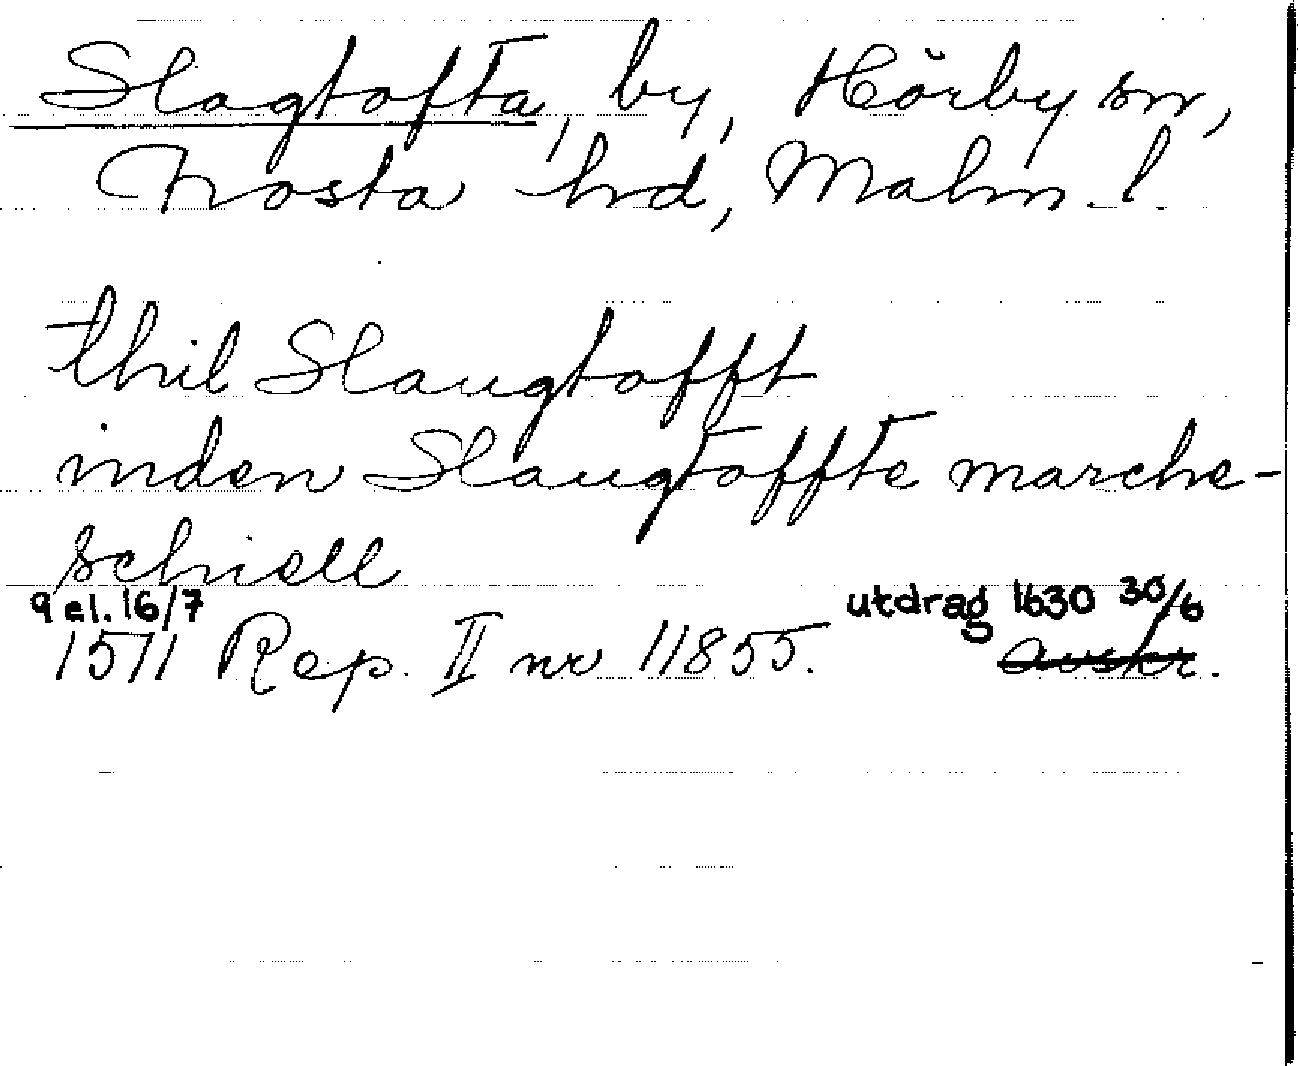 Slagtofta, by, Hörby sn,
Frosta hrd, Malm. l.
thil Slaugtofft
inden Slaugtoffte marche-
schiell
9 el. 16/7 utdrag 1630 30/6
1571 Rep. II nr 11855. avskr.